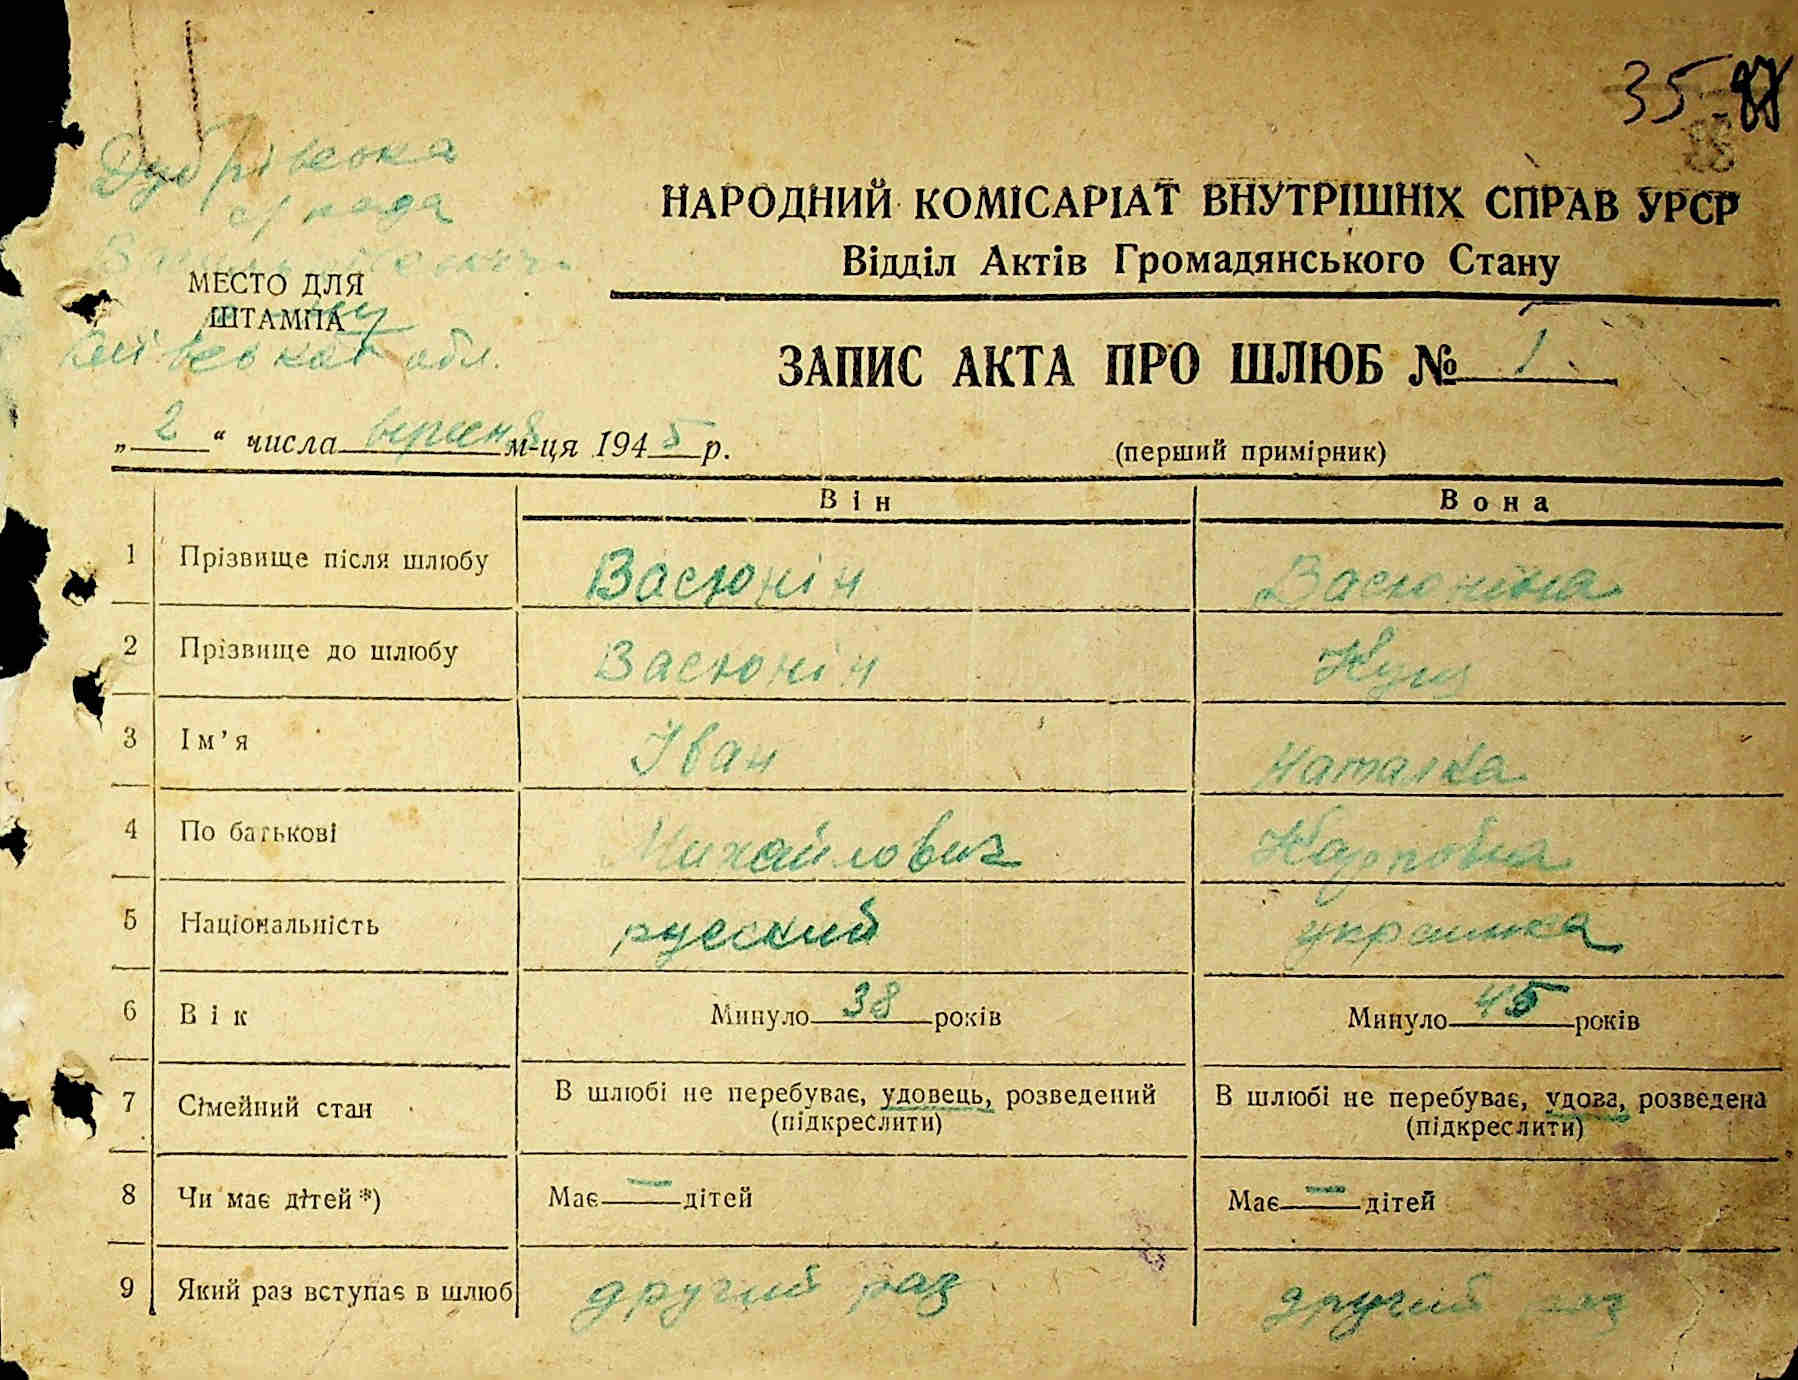 35
Дубрівська
с/рада
МЕСТО ДЛЯ
ШТАМПА
Київської обл.
НАРОДНИЙ КОМІСАРІАТ ВНУТРІШНІХ СПРАВ УРСР
Відділ Актів Громадянського Стану
ЗАПИС АКТА ПРО ШЛЮБ № 1
„ 2 “ числа вересня м-ця 1945 р.
(перший примірник)
Він Вона
1 Прізвище після шлюбу Васюнін Васюніна
2 Прізвище до шлюбу Васюнін Кущ
3 Ім’я Іван Наталка
4 По батькові Михайлович Карповна
5 Національність русский украинка
6 Вік Минуло 38 років Минуло 45 років
7 Сімейний стан В шлюбі не перебуває, удовець, розведений В шлюбі не перебуває, удова, розведена
(підкреслити) (підкреслити)
8 Чи має дітей *) Має — дітей Має — дітей
9 Який раз вступає в шлюб другий раз другий раз